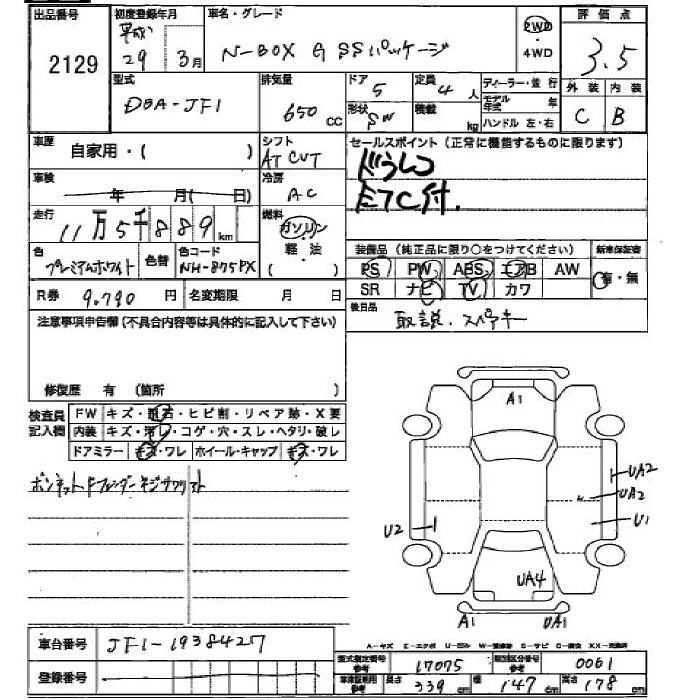 出品番号 初度登録年月 車名・グレード 評価点
2129 平成 29 3月 N-BOX G SSパッケージ 2WD ・ 4WD 3.5
型式 排気量 ドア 定員 ディーラー・並行 外装 内装
DBA-JF1 650 cc 5 4人 モデル年式 年 C B
形状 SW 積載 kg ハンドル 左・右
車歴 自家用・( ) シフト AT CVT セールスポイント(正常に機能するものに限ります)
車検 年 月( 日) 冷房 AC ドラレコ
ETC付.
走行 11万5千889km 燃料 ガソリン・軽・油 ( )
色 プレミアムホワイト 色替 色コード NH-875PX 装備品(純正品に限り○をつけてください) 新車保証書
PS PW ABS エアB AW 有・無
SR ナビ TV カワ
R券 9,790円 名変期限 月 日 後日品 取説.スペアキー
注意事項申告欄(不具合内容等は具体的に記入して下さい)
修復歴 有 (箇所 )
検査員記入欄 FW キズ・飛石・ヒビ割・リペア跡・X要
内装 キズ・汚レ・コゲ・穴・スレ・ヘタリ・破レ
ドアミラー キズ・ワレ ホイール・キャップ キズ・ワレ
A1
UA2
UA2
U2
U1
UA4
A1 UA1
A-キズ E-エクボ U-凹み
車台番号 JF1-1938427
登録番号
型式指定番号 参考 17075 類別区分番号 参考 0061
車庫証明用 参考 長さ 339cm 幅 147cm 高さ 178cm